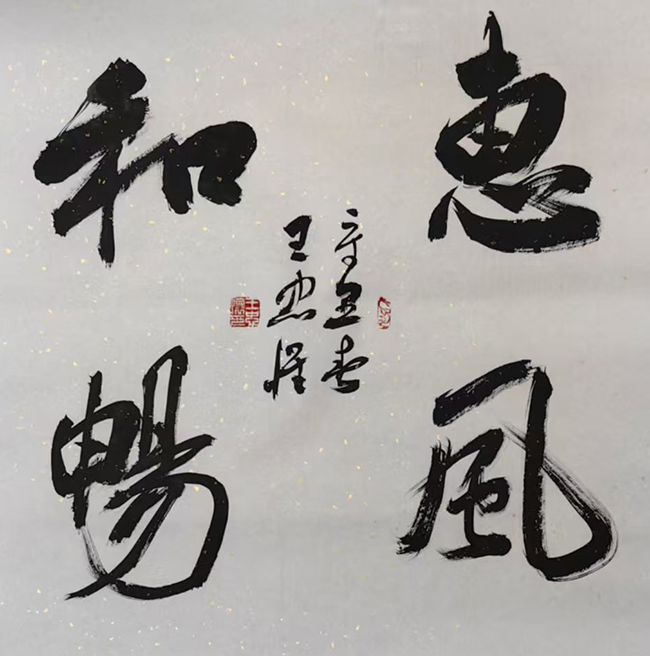 惠風
和暢
辛丑春
王忠